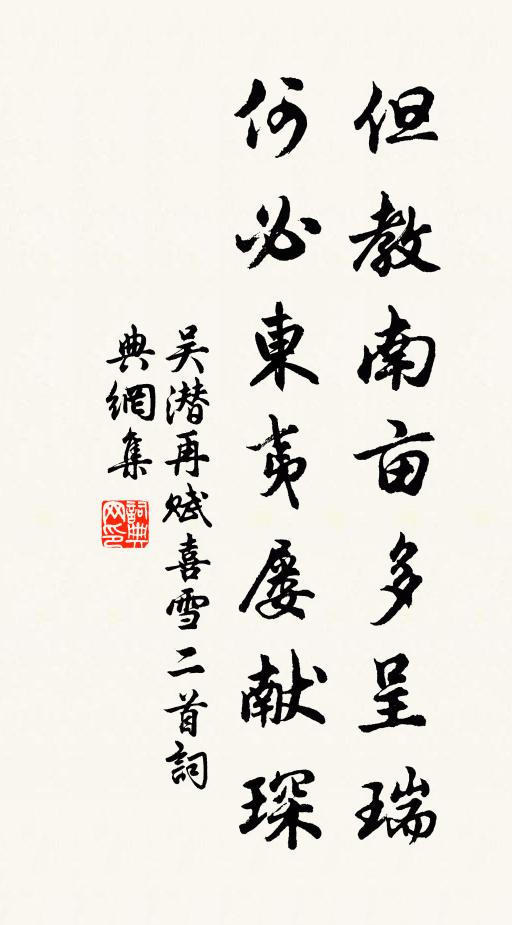 但教南亩多呈瑞
何必東夷屡献琛
吴潜再赋喜雪二首詞
典網集
詞典网印